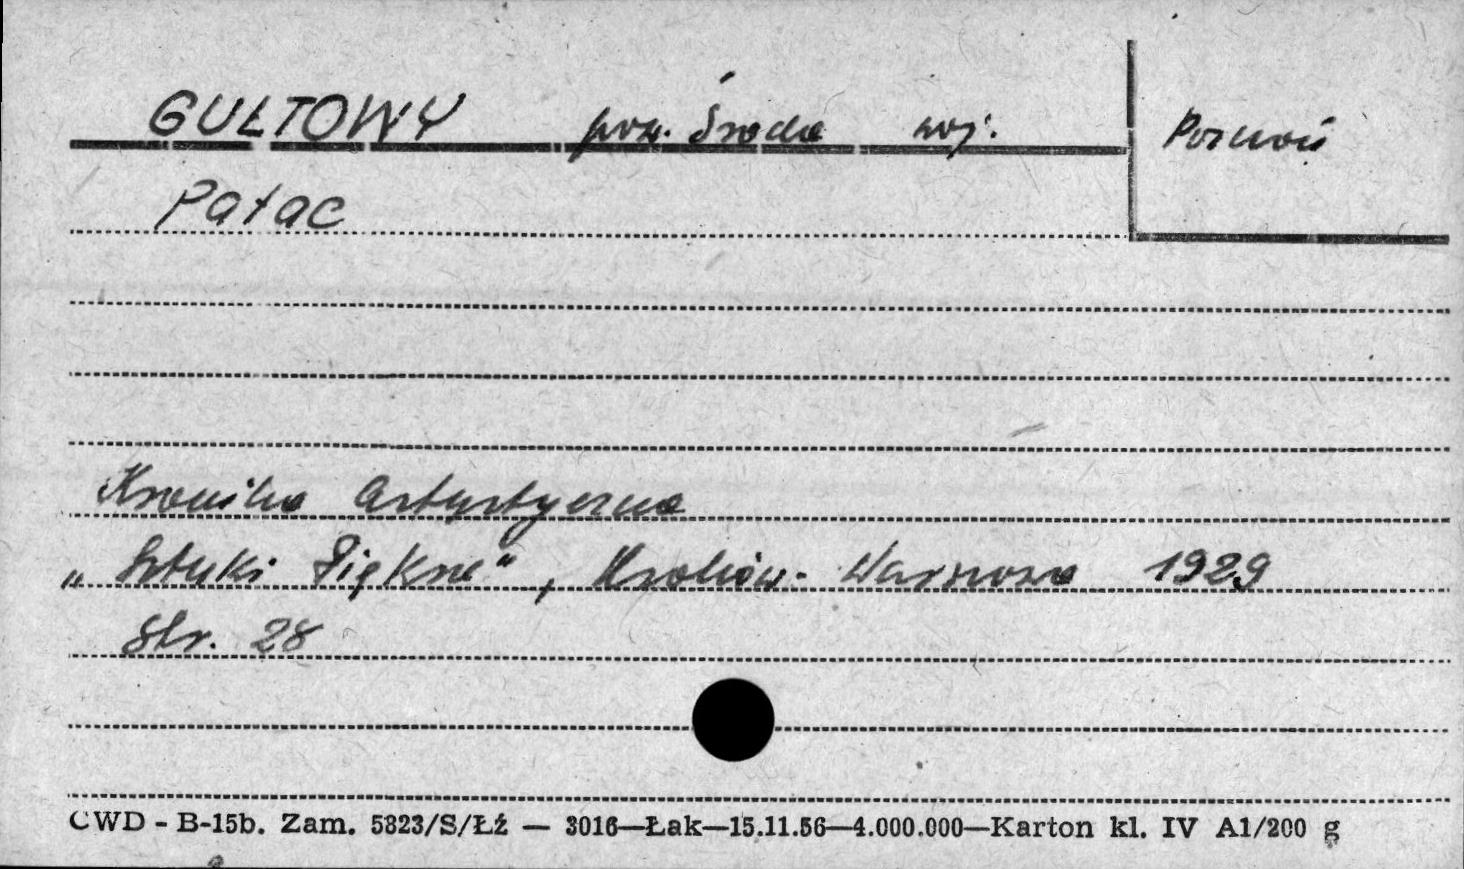 GUŁTOWY pow. Środa woj. Poznań
Pałac
Kronika Artystyczna
„Sztuki Piękne", Kraków - Warszawa 1929
Str. 28
CWD - B-15b. Zam. 5323/S/Łź — 3016—Łak—15.11.56—4.000.000—Karton kl. IV A1/200 g